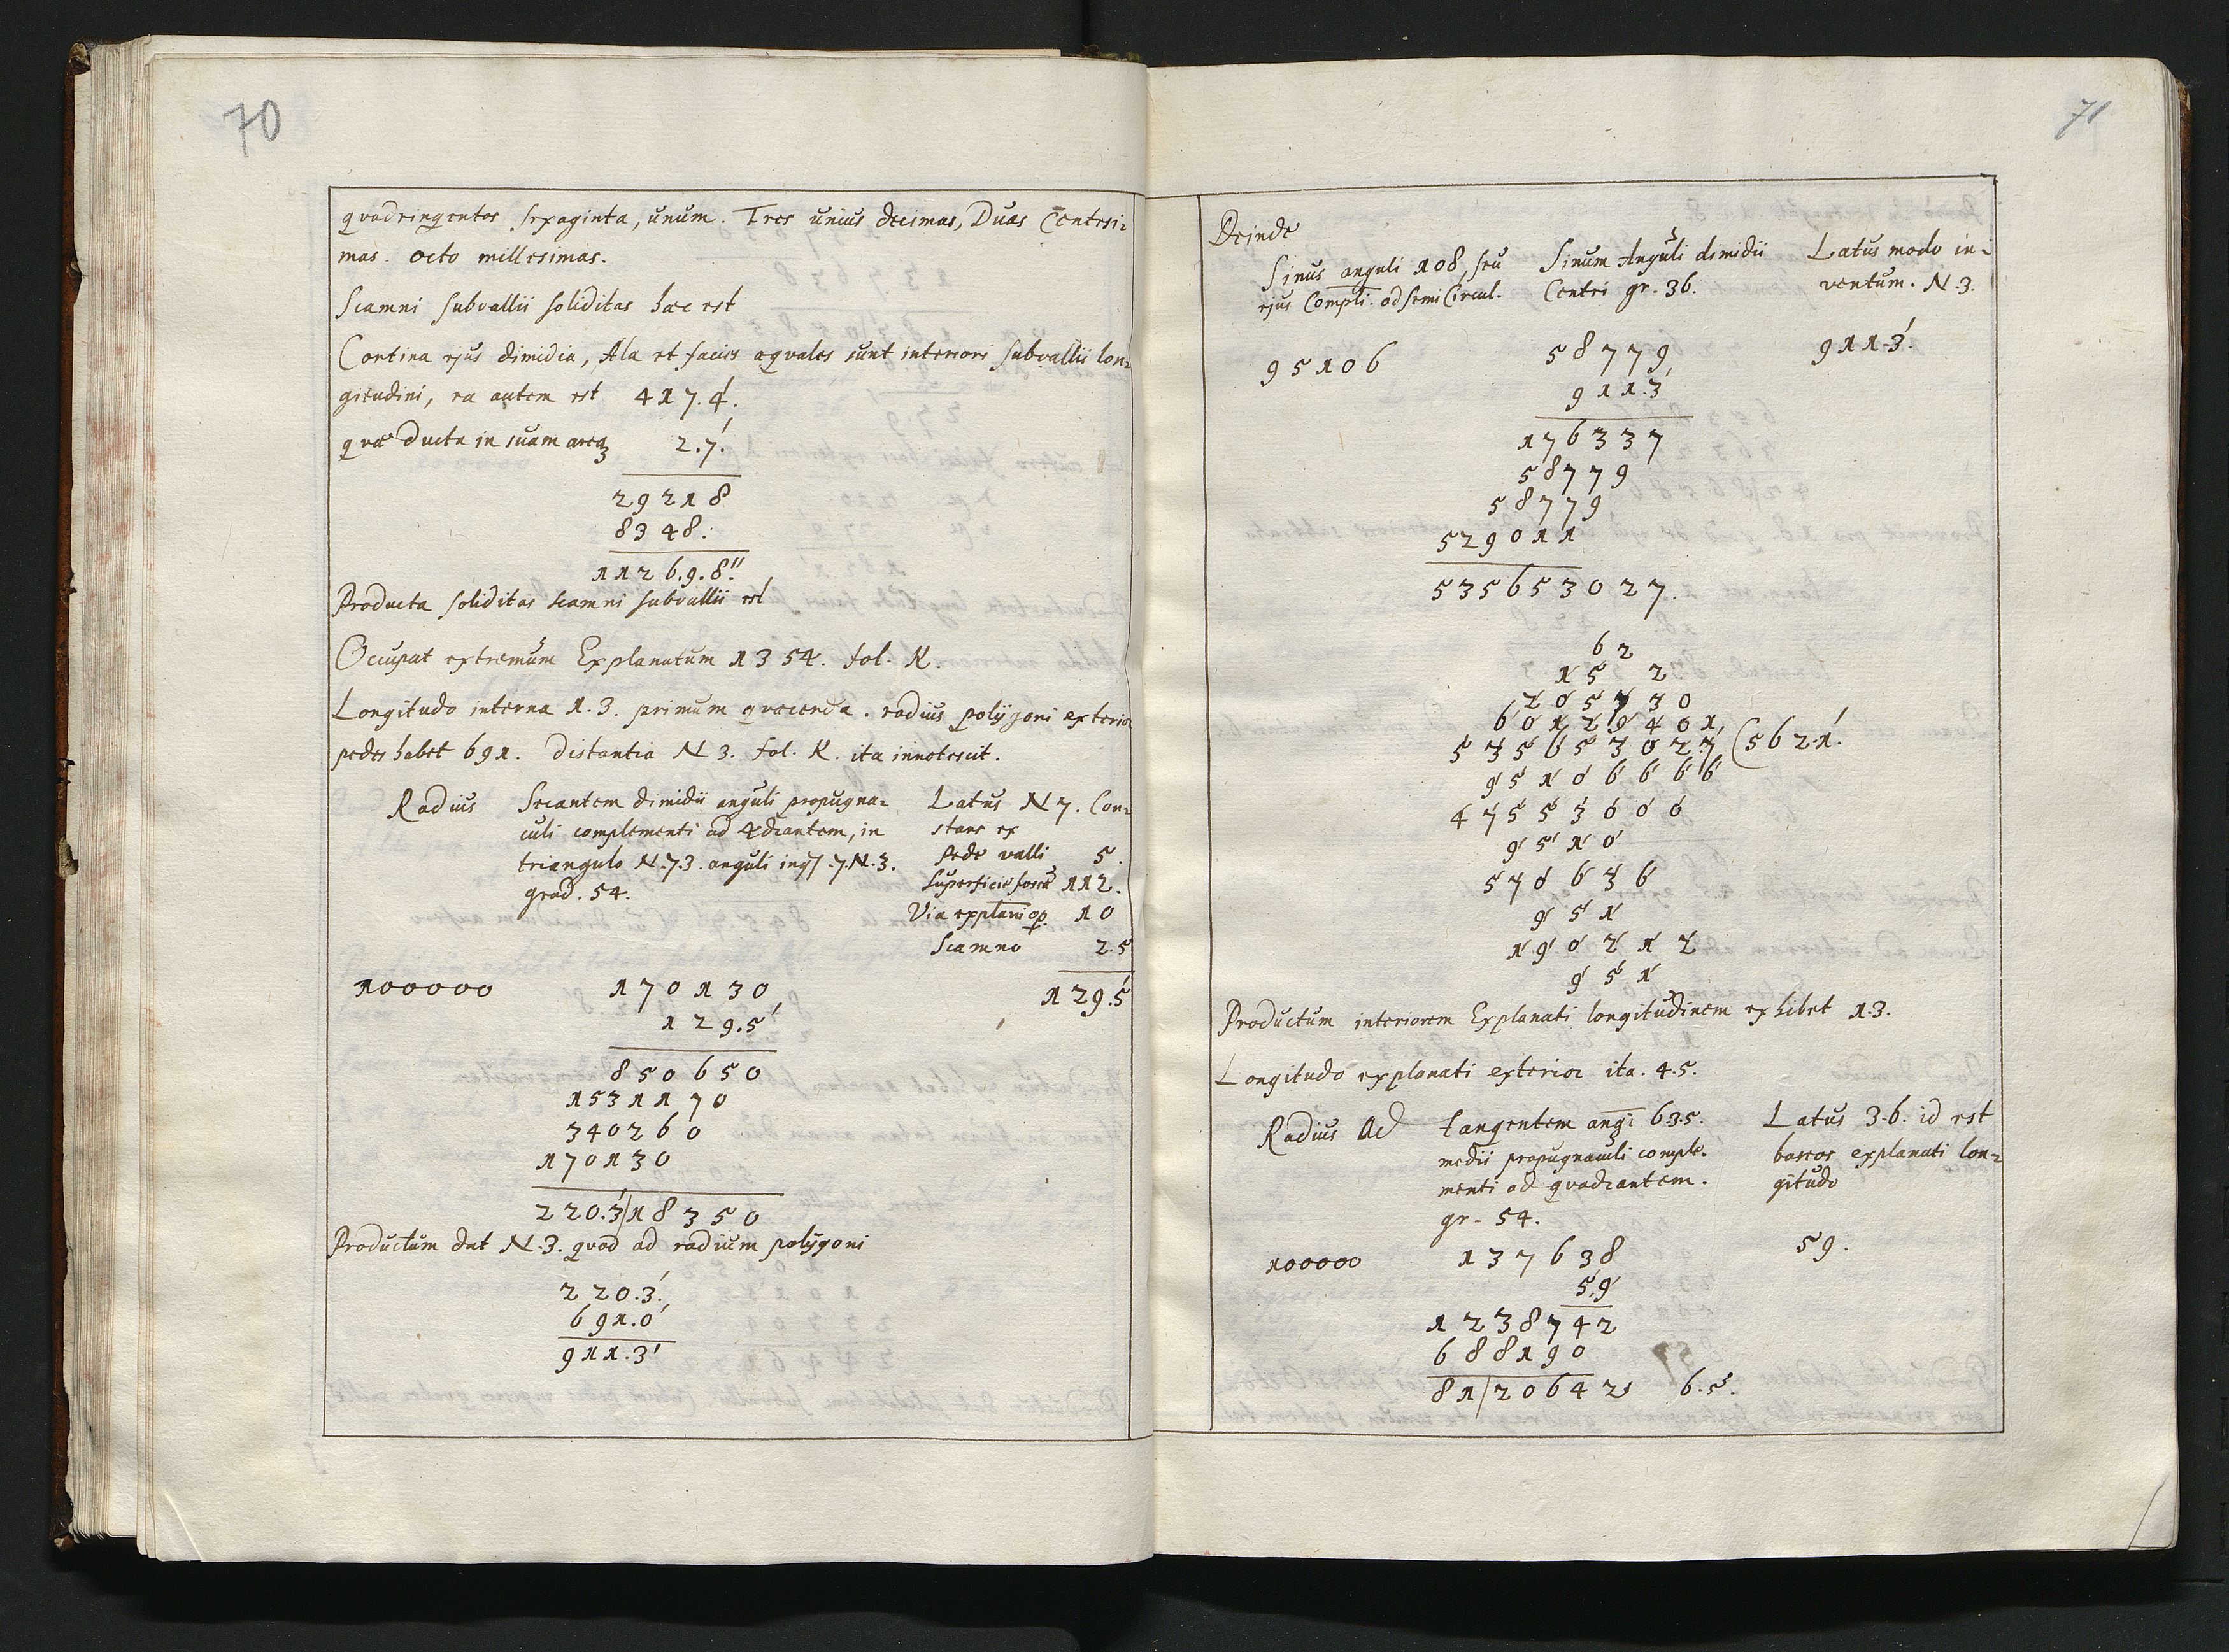 70
quadringentos sexaginta, unum. Tres unius decimas, Duas Centesi=
mas. octo millesimas.
Scamni subvallii soliditas haec est
Cortina ejus dimidia, Ala et facies aequales sunt interiori subvallii lon=
gitudini, ea autem est 417.4'.
quae Ducta in suam arcam 2.7'.
29218
8348.
1126.9.8''.
Producta soliditas scamni subvallii est
Occupat extremum Explanatum 1354. fol. K.
Longitudo interna 1.3. primum quaerenda. radius polijgoni exterior
pedes habet 691. Distantia N 3. fol. K. ita innotescit.
Radius Secantem dimidii anguli propugna= Latus N 7. Con=
culi complementi ad 4drantem, in stans ex
triangulo N.7.3. anguli 7.N.3. Pede valli 5.
grad. 54. Superficie fossae 112.
Via 10
Scamno 2.5
100000 170130 129.5'
129.5'
850650
1531170
340260
170130
220.3'|18350
Productum dat N.3. quod ad radium polijgoni
220.3'.
691.0'
911.3'
71
Deinde
Sinus anguli 108, seu Sinum Anguli dimidii Latus modo in=
ejus Compli. ad semi Circul. Centri gr. 36. ventum. N.3.
95106 58779 911.3'.
911.3'
176337
58779
58779
529011
535653027.
62
15 2
205730
60129401
535653027 (562.1'.
951066666
475530606
9510
570636
951
190212
951
Productum interiorem Explanati longitudinem exhibet 1.3.
Longitudo explanati exterior ita. 4.5.
Radius Ad tangentem angi 6.3.5. Latus 3.6. id est
medii propugnaculi comple- baseos explanati lon=
menti ad quadrantem. gitudo
gr. 54.
100000 137638 59.
59
1238742
688190
81|20642 6.5.